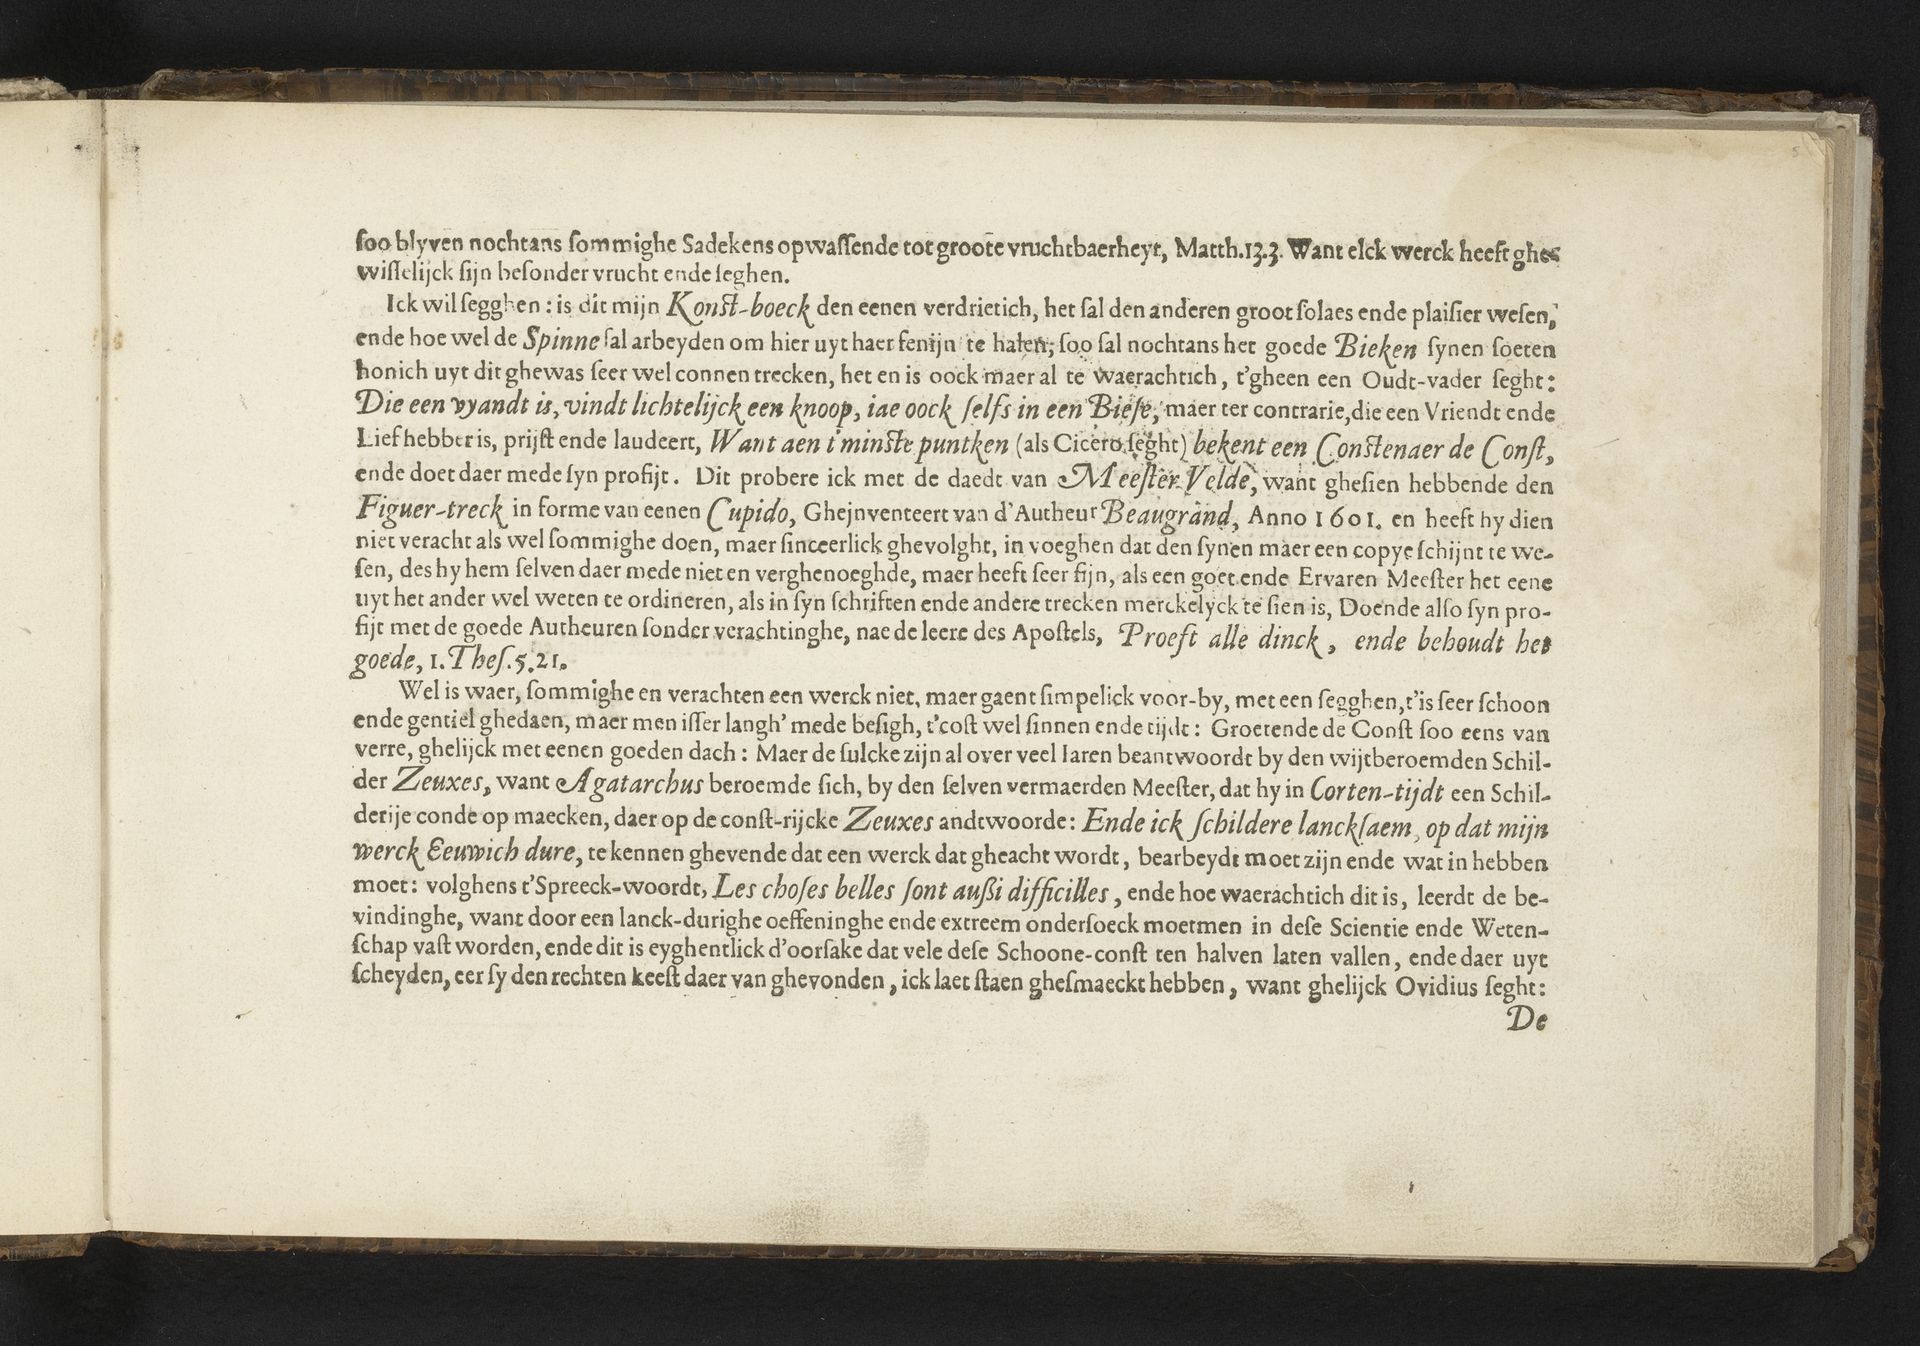 ſoo blyven nochtans ſommighe Sadekens opwaſſende tot groote vruchtbaerheyt, Matth.13.3. Want elck werck heeft ghe-
wiſſelijck ſijn beſonder vrucht ende ſeghen.
Ick wil ſegghen: is dit mijn Konſt-boeck den eenen verdrietich, het ſal den anderen groot ſolaes ende plaiſier weſen,
ende hoe wel de Spinne ſal arbeyden om hier uyt haer fenijn te halen, ſoo ſal nochtans het goede Bieken ſynen ſoeten
honich uyt dit ghewas ſeer wel connen trecken, het en is oock maer al te waerachtich, t'gheen een Oudt-vader ſeght:
Die een vyandt is, vindt lichtelijck een knoop, iae oock ſelfs in een Bieſe, maer ter contrarie, die een Vriendt ende
Liefhebber is, prijſt ende laudeert, Want aen t'minſte puntken (als Cicero ſeght) bekent een Conſtenaer de Conſt,
ende doet daer mede ſyn profijt. Dit probere ick met de daedt van Meeſter Velde, want gheſien hebbende den
Figuer-treck in forme van eenen Cupido, Ghejnventeert van d'Autheur Beaugrand, Anno 1601. en heeft hy dien
niet veracht als wel ſommighe doen, maer ſinceerlick ghevolght, in voeghen dat den ſynen maer een copye ſchijnt te we-
ſen, des hy hem ſelven daer mede niet en verghenoeghde, maer heeft ſeer fijn, als een goet ende Ervaren Meeſter het eene
uyt het ander wel weten te ordineren, als in ſyn ſchriften ende andere trecken merckelyck te ſien is, Doende alſo ſyn pro-
fijt met de goede Autheuren ſonder verachtinghe, nae de leere des Apoſtels, Proeft alle dinck, ende behoudt het
goede, 1.Theſ.5.21.
Wel is waer, ſommighe en verachten een werck niet, maer gaent ſimpelick voor-by, met een ſegghen, t'is ſeer ſchoon
ende gentiel ghedaen, maer men iſſer langh' mede beſigh, t'coſt wel ſinnen ende tijdt: Groetende de Conſt ſoo eens van
verre, ghelijck met eenen goeden dach: Maer de ſulcke zijn al over veel Iaren beantwoordt by den wijtberoemden Schil-
der Zeuxes, want Agatarchus beroemde ſich, by den ſelven vermaerden Meeſter, dat hy in Corten-tijdt een Schil-
derije conde op maecken, daer op de conſt-rijcke Zeuxes andtwoorde: Ende ick ſchildere lanckſaem, op dat mijn
werck Eeuwich dure, te kennen ghevende dat een werck dat gheacht wordt, bearbeydt moet zijn ende wat in hebben
moet: volghens t'Spreeck-woordt, Les choſes belles ſont außi difficilles, ende hoe waerachtich dit is, leerdt de be-
vindinghe, want door een lanck-durighe oeffeninghe ende extreem onderſoeck moetmen in deſe Scientie ende Weten-
ſchap vaſt worden, ende dit is eyghentlick d'oorſake dat vele deſe Schoone-conſt ten halven laten vallen, ende daer uyt
ſcheyden, eer ſy den rechten keeſt daer van ghevonden, ick laet ſtaen gheſmaeckt hebben, want ghelijck Ovidius ſeght:
De